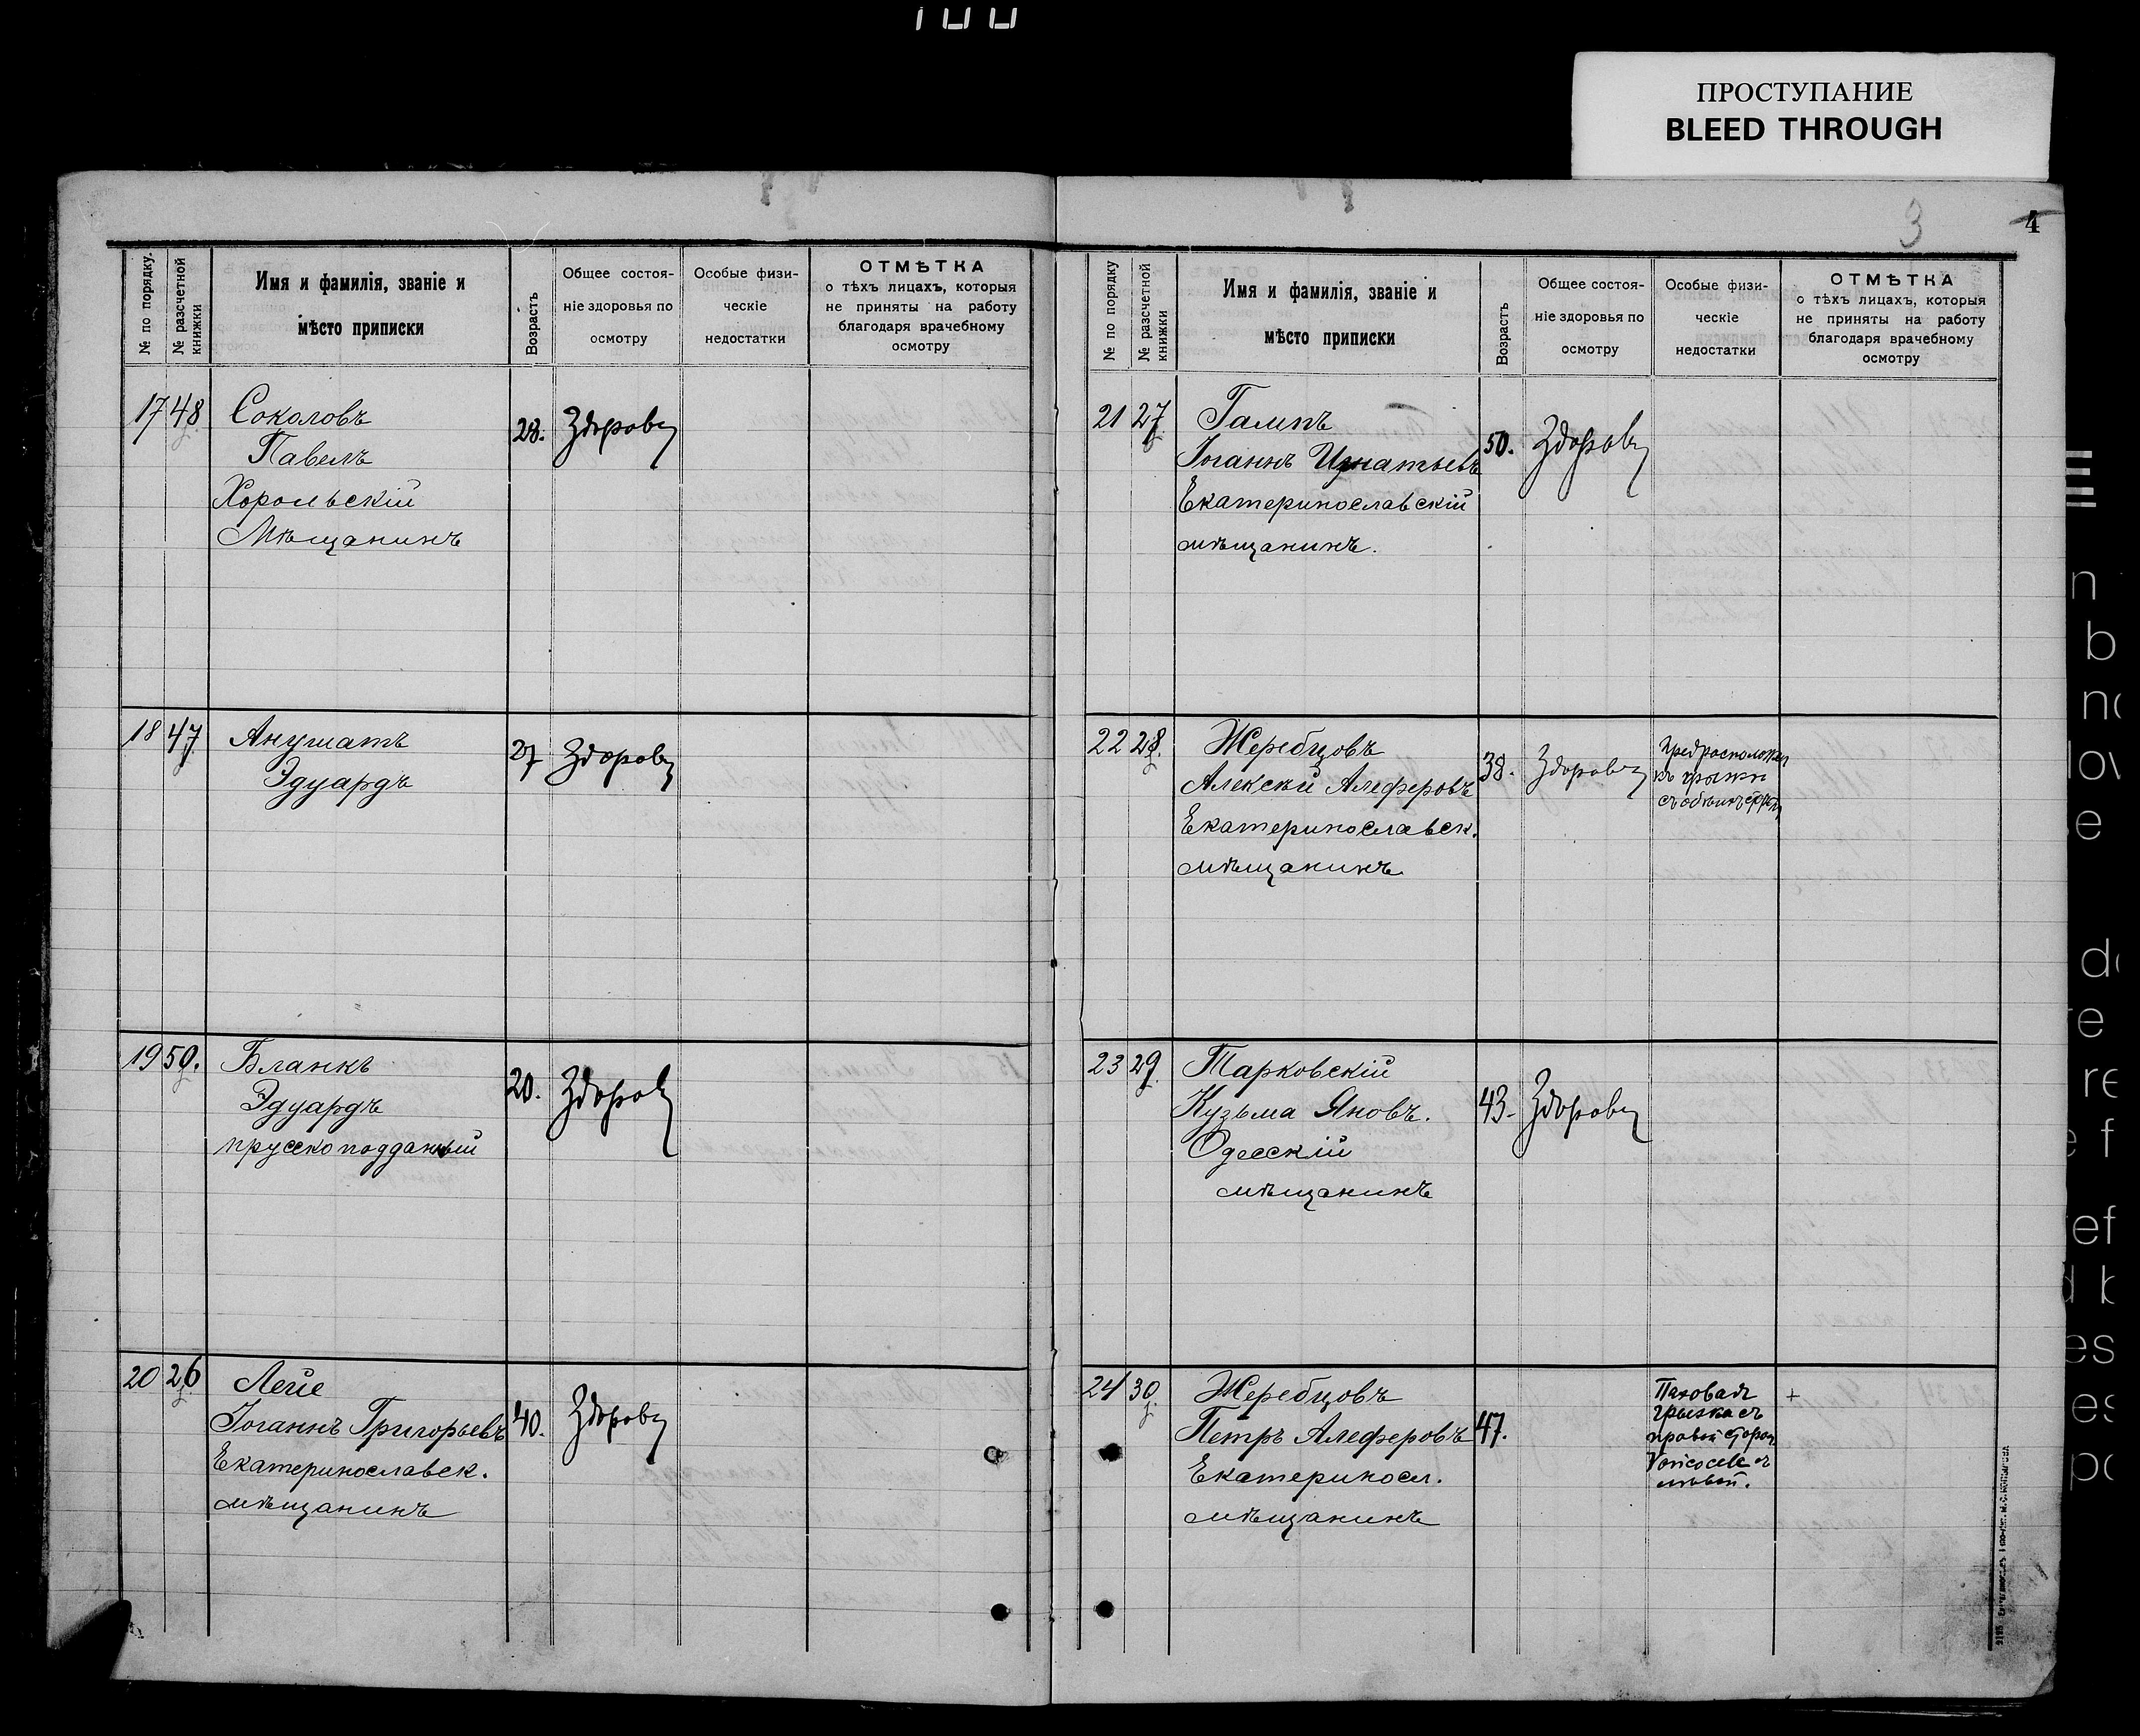 ПРОСТУПАНИЕ
BLEED THROUGH
3
4
№ по порядку.
№ разсчетной книжки
Имя и фамилія, званіе и
мѣсто приписки
Возрастъ
Общее состоя-
ніе здоровья по
осмотру
Особые физи-
ческіе
недостатки
ОТМѢТКА
о тѣхъ лицахъ, которыя
не приняты на работу
благодаря врачебному
осмотру
17 48 Соколовъ
Павелъ 28. Здоровъ
Хорольскій
Мѣщанинъ
18 47
Эдуардъ 27 Здоровъ
19 50. Бланкъ
Эдуардъ 20. Здоровъ
прусскоподданный
20 26 Лейе
Іоганнъ Григорьевъ 40. Здоровъ
Екатеринославск.
мѣщанинъ
№ по порядку
№ разсчетной книжки
Имя и фамилія, званіе и
мѣсто приписки
Возрастъ
Общее состоя-
ніе здоровья по
осмотру
Особые физи-
ческіе
недостатки
ОТМѢТКА
о тѣхъ лицахъ, которыя
не приняты на работу
благодаря врачебному
осмотру
21 27 Гампъ
Іоганнъ Игнатьевъ 50. Здоровъ
Екатеринославскій
мѣщанинъ.
22 28. Жеребцовъ
Алексѣй Алеферовъ 38. Здоровъ
Екатеринославск.
мѣщанинъ
къ грыжи
23 29 Тарковскій
Кузьма Яновъ. 43. Здоровъ
Одесскій
мѣщанинъ
24 30 Жеребцовъ
Петръ Алеферовъ 47.
Екатериносл.
мѣщанинъ
Паховая
грыжа съ
правой сторон
Varicocele съ
лѣвой.
+